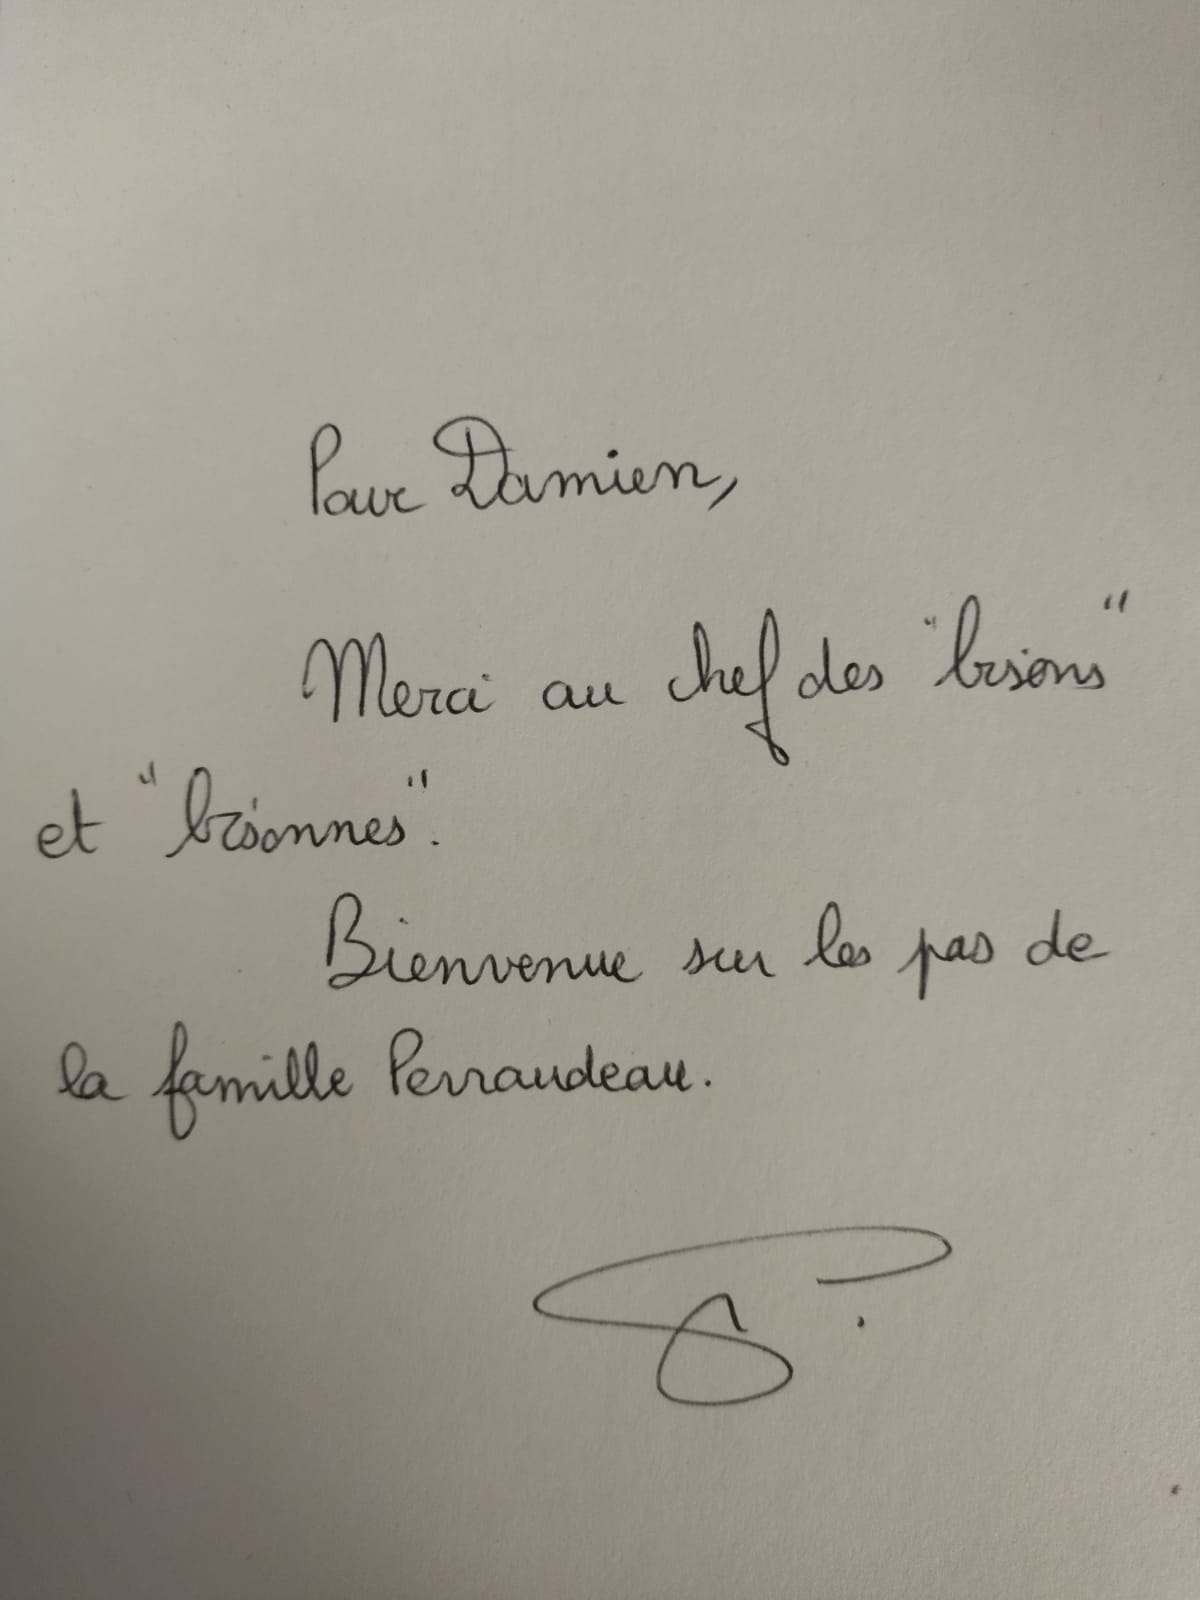 Pour Damien,
Merci au chef des "brisons"
et "brisonnes".
Bienvenue sur les pas de
la famille Perraudeau.